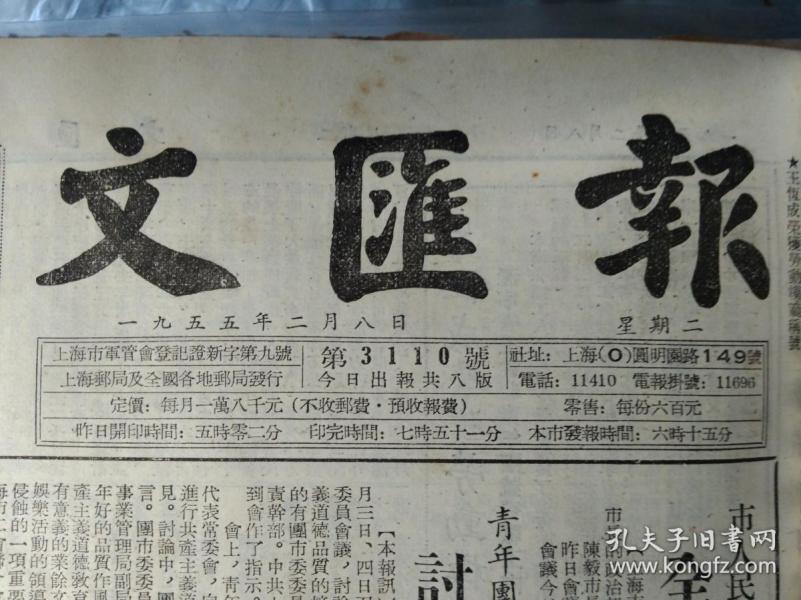 文匯報
一九五五年二月八日 星期二
上海市軍管會登記證新字第九號
上海郵局及全國各地郵局發行
第3110號
今日出報共八版
社址：上海(0)圓明園路149號
電話：11410 電報掛號：11696
定價：每月一萬八千元(不收郵費·預收報費) 零售：每份六百元
昨日開印時間：五時零二分 印完時間：七時五十一分 本市發報時間：六時十五分
市人民
全
陳毅市
昨日會
會議今
青年團
討
【本報訊
月三日、四日
委員會議，討
義道德品質的
的有團市委委員
責幹部。中共
到會作了指示。
會上，青年
代表常委會，
進行共產主義道
見。討論中，團
言。團市委委員
事業管理局副局
年好的品質作風
產主義道德教育
有意義的業餘文
娛樂活動的領導
侵蝕的一項重要
孔夫子旧书网
www.kongfz.com